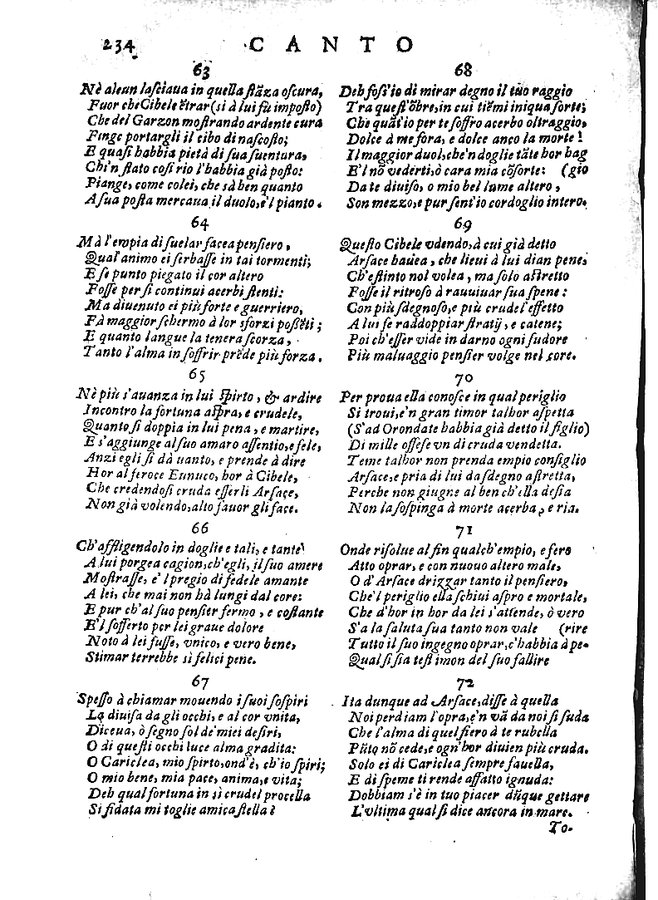 234 CANTO
63
Nè alcun lasciaua in quella stāza oscura,
Fuor che Cibele ētrar (sì à lui fù imposto)
Che del Garzon mostrando ardente cura
Finge portargli il cibo di nascosto;
E quasi habbia pietà di sua suentura,
Ch'in stato così rio l'habbia già posto:
Piange, come colei, che sà ben quanto
A sua posta mercaua il duolo, e'l pianto.
64
Mà l'empia di suelar facea pensiero,
Qual'animo ei serbasse in tai tormenti;
E se punto piegato il cor altero
Fosse per sì continui acerbi stenti:
Ma diuenuto ei più forte e guerriero,
Fà maggior schermo à lor sforzi possēti;
E quanto langue la tenera scorza,
Tanto l'alma in soffrir prēde più forza.
65
Nè più s'auanza in lui spirto, & ardire
Incontro la fortuna aspra, e crudele,
Quanto si doppia in lui pena, e martire,
E s'aggiunge al suo amaro assentio, e fele,
Anzi egli si dà uanto, e prende à dire
Hor al feroce Eunuco, hor à Cibele,
Che credendosi cruda esserli Arsace,
Non già volendo, alto fauor gli face.
66
Ch'affligendolo in doglie e tali, e tante
A lui porgea cagion, ch'egli, il suo amere
Mostrasse, e'l pregio di fedele amante
A lei, che mai non hà lungi dal core:
E pur ch'al suo pensier fermo, e costante
E'l sofferto per lei graue dolore
Noto à lei fusse, vnico, e vero bene,
Stimar terrebbe sì felici pene.
67
Spesso à chiamar mouendo i suoi sospiri
La diuisa da gli occhi, e al cor vnita,
Diceua, ò segno sol de' miei desiri,
O di questi occhi luce alma gradita:
O Cariclea, mio spirto, ond'è, ch'io spiri;
O mio bene, mia pace, anima, e vita;
Deh qual fortuna in sì crudel procella
Sì fidata mi toglie amica stella?
68
Deh foss'io di mirar degno il tuo raggio
Tra quest'ōbre, in cui tiēmi iniqua sorte;
Chè quāt'io per te soffro acerbo oltraggio,
Dolce à me fora, e dolce anco la morte!
Il maggior duol, che'n doglie tāte hor hag
E'l nō vederti, ò cara mia cōsorte: (gio
Da te diuiso, o mio bel lume altero,
Son mezzo, e pur sent'io cordoglio intero.
69
Questo Cibele vdendo, à cui già detto
Arsace hauea, che lieui à lui dian pene,
Ch'estinto nol volea, ma solo astretto
Fosse il ritroso à rauuiuar sua spene:
Con più sdegnoso, e più crudel'effetto
A lui fe raddoppiar stratij, e catene;
Poi ch'esser vide in darno ogni sudore
Più maluaggio pensier volge nel core.
70
Per proua ella conosce in qual periglio
Si troui, e'n gran timor talhor aspetta
(S'ad Orondate habbia già detto il figlio)
Di mille offese vn di cruda vendetta.
Teme talhor non prenda empio consiglio
Arsace, e pria di lui da sdegno astretta,
Perche non giugne al ben ch'ella desia
Non la sospinga à morte acerba, e ria.
71
Onde risolue al fin qualch'empio, e fero
Atto oprar, e con nuouo altero male,
O d'Arsace drizzar tanto il pensiero,
Che'l periglio ella schiui aspro e mortale,
Che d'hor in hor da lei s'attende, ò vero
S'a la saluta sua tanto non vale (rire
Tutto il suo ingegno oprar, c'habbia à pe-
Qual si sia testimon del suo fallire
72
Ita dunque ad Arsace, disse à quella
Noi perdiam l'opra, e'n vā da noi si suda
Che l'alma di quel fiero à te rubella
Pūto nō cede, e ogn'hor diuien più cruda.
Solo ei di Cariclea sempre fauella,
E di speme ti rende affatto ignuda:
Dobbiam s'è in tuo piacer dūque gettare
L'vltima qual si dice ancora in mare.
To-